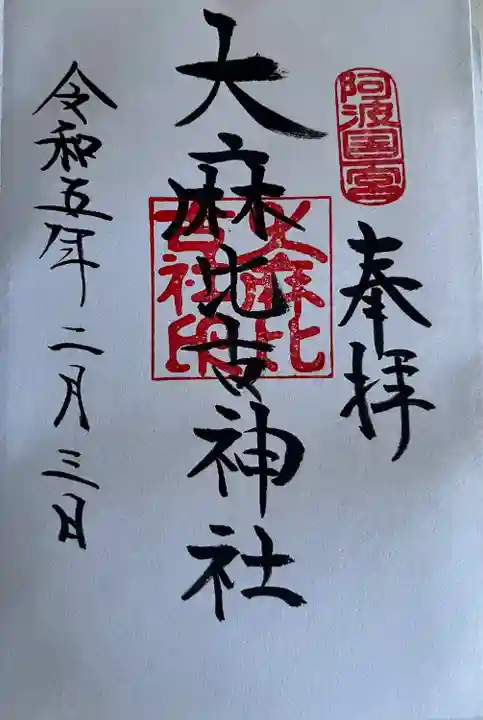 阿波国一宮
奉拝
大麻比古神社
大麻比
古社印
令和五年二月三日